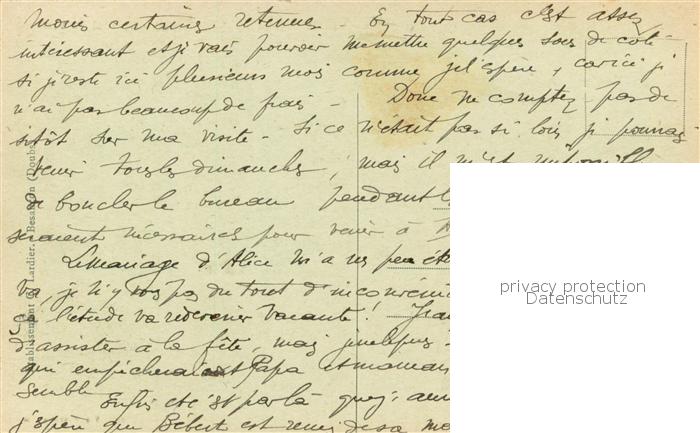 moins certaines retenues - En tout cas c'est assez
intéressant et je vais pouvoir me mettre quelques sous de coté
si je reste ici plusieurs mois comme je l'espère, car ici je
n'ai pas beaucoup de frais - Donc ne comptez pas de
sitôt sur ma visite - Si ce n'était pas si loin je pourrais
venir tous les dimanches, mais il m'est
de boucler le bureau pendant
seraient nécessaires pour venir à
Le mariage d'Alice m'a un peu
Va, je n'y vois pas du tout d'inconvénient
à l'étude va redevenir vacante !
d'assister à la fête, mais quelques
qui empêcheraient Papa et maman
semble Enfin c'est par là que j'
j'espère que Bébert est remis de sa
Etablissement C. Lardier, Besançon (Doubs)
privacy protection
Datenschutz